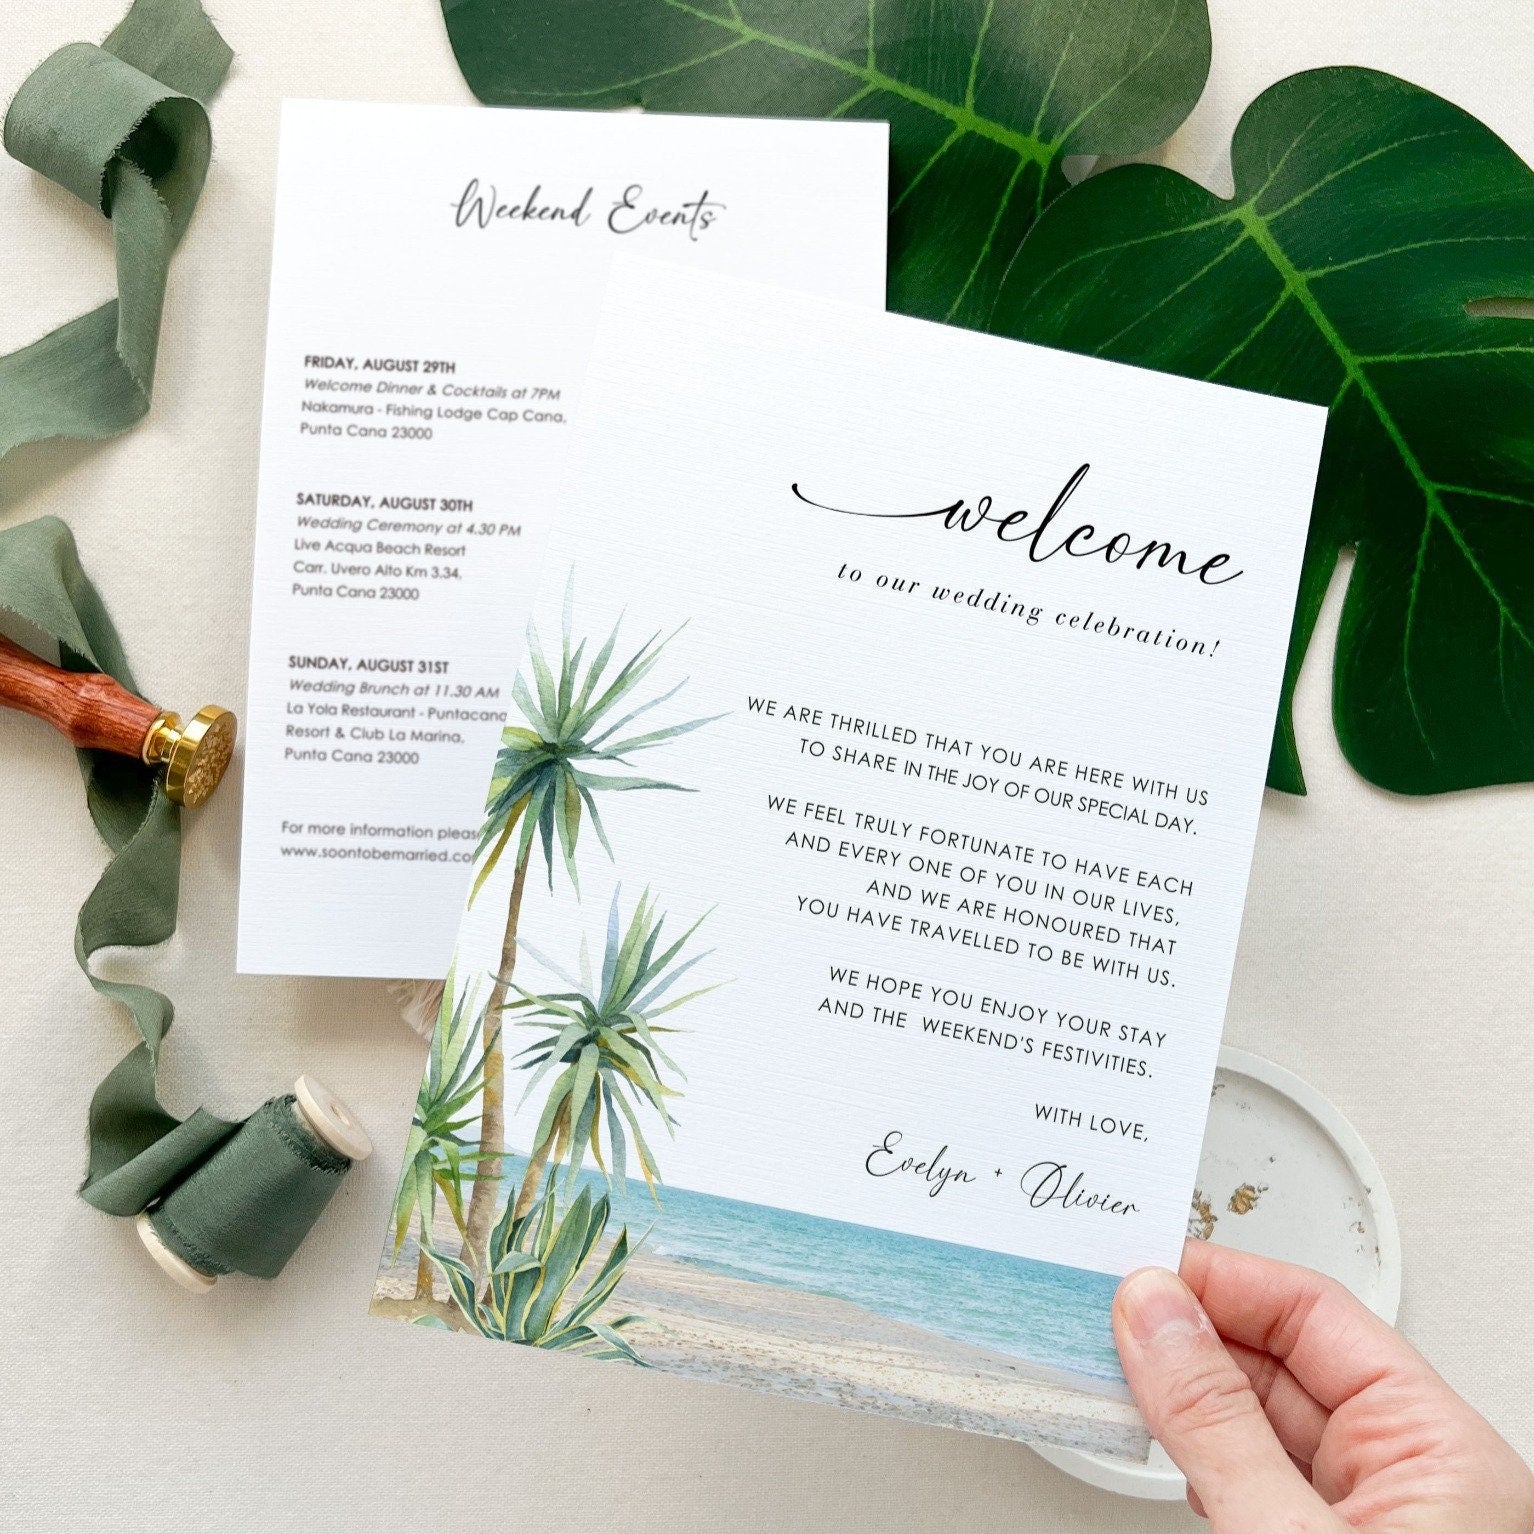 Weekend Events
FRIDAY, AUGUST 29TH
Welcome Dinner & Cocktails at 7PM
Nakamura - Fishing Lodge Cap Cana,
Punta Cana 23000
SATURDAY, AUGUST 30TH
Wedding Ceremony at 4.30 PM
Live Acqua Beach Resort
Carr. Uvero Alto Km 3.34,
Punta Cana 23000
SUNDAY, AUGUST 31ST
Wedding Brunch at 11.30 AM
La Yola Restaurant - Puntacana
Resort & Club La Marina,
Punta Cana 23000
For more information
www.soontobemarried.co
welcome
to our wedding celebration!
WE ARE THRILLED THAT YOU ARE HERE WITH US
TO SHARE IN THE JOY OF OUR SPECIAL DAY.
WE FEEL TRULY FORTUNATE TO HAVE EACH
AND EVERY ONE OF YOU IN OUR LIVES,
AND WE ARE HONOURED THAT
YOU HAVE TRAVELLED TO BE WITH US.
WE HOPE YOU ENJOY YOUR STAY
AND THE WEEKEND'S FESTIVITIES.
WITH LOVE,
Evelyn + Olivier